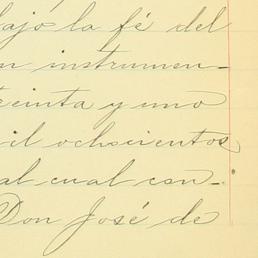 bajo la fé del
n instrumen-
treinta y uno
il ochocientos
al cual con-
Don José de